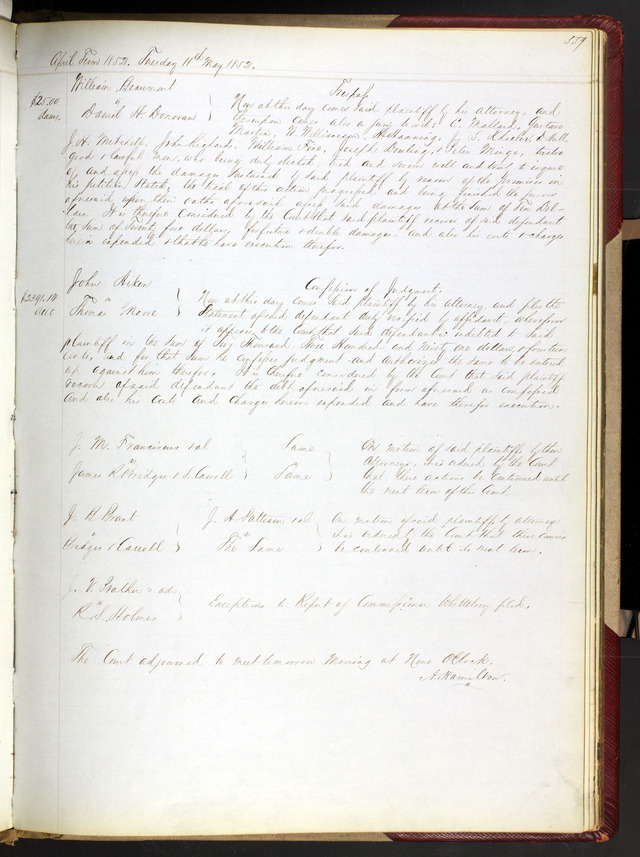 559
April Term 1852. Tuesday 11th May 1852.
William Beaumont
" Trespass
$25.00 dams. Daniel H Donovan } Now at this day comes said plaintiff by his attorney, and
thereupon comes also a jury to wit: C. Mallard, Gustave
Martin, W. Williamson, H. Manning, G. S. Kibuler, D. Hall,
J. H. Metcalf, John Richards, William Fire, Joseph Dowling, & Peter Mingo, twelve
good & lawful men, who being duly elected, tried and sworn well and truly to inquire
of, and assess the damages sustained by said plaintiff by reason of the premises in
his petition stated, the trial of this action progressed and being finished the jurors
aforesaid upon their oaths aforesaid assess said damages at the sum of Ten Dol-
lars. It is therefore considered by the Court that said plaintiff recover of said defendant
the sum of twenty five dollars, and double damages and also his costs & charges
herein expended & that he have execution therefor.
John Aiken
" Confession of Judgment.
$2391.14 debt Thomas Moore } Now at this day comes said plaintiff by his attorney and files the
Statement of said defendant duly verified by affidavit, whereupon
it appears to the Court that said defendant is indebted to said
plaintiff in the sum of Two thousand Three Hundred and Ninety one dollars, & fourteen
cents, and for that sum he confesses judgment and authorizes the same to be entered
up against him therefor. It is therefore considered by the Court that said plaintiff
recover of said defendant the debt aforesaid in form aforesaid as confessed
and also his costs and charges herein expended and have therefor execution.
J. M. Franciscus & al } Same } On motion of said plaintiffs by their
" " attorneys, it is ordered by the Court
James R Bridges & S. Carroll } Same } that these actions be continued until
the next term of this Court.
J. H. Brant } J. A. Patterson & al } On motion of said plaintiffs by attorney
" " it is ordered by the Court that these causes
Bridges & Carroll } The Same } be continued until the next term.
J. V. Prather & ads
" } Exceptions to Report of Commissioner Whittelsey filed.
R. S. Holmes
The Court adjourned to meet tomorrow morning at Nine OClock.
A. Hamilton.